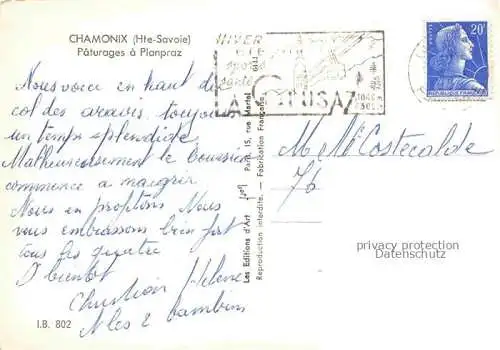 CHAMONIX (Hte-Savoie)
Pâturages à Planpraz
Nous voici en haut du
col des aravis. toujours
un temps splendide
Malheureusement le boursier
commence a maigrir
Nous en profitons Nous
vous embrassons bien fort
tous les quatre
A bientôt
Christian Helene
Mes 2 bambins
I.B. 802
Les Editions d'Art Paris, 15, rue Martel
Reproduction interdite. - Fabrication Française
HIVER
ETE
sport
santé
LA CLUSAZ
20F
REPUBLIQUE FRANÇAISE
M Melle Costecalde
76
privacy protection
Datenschutz